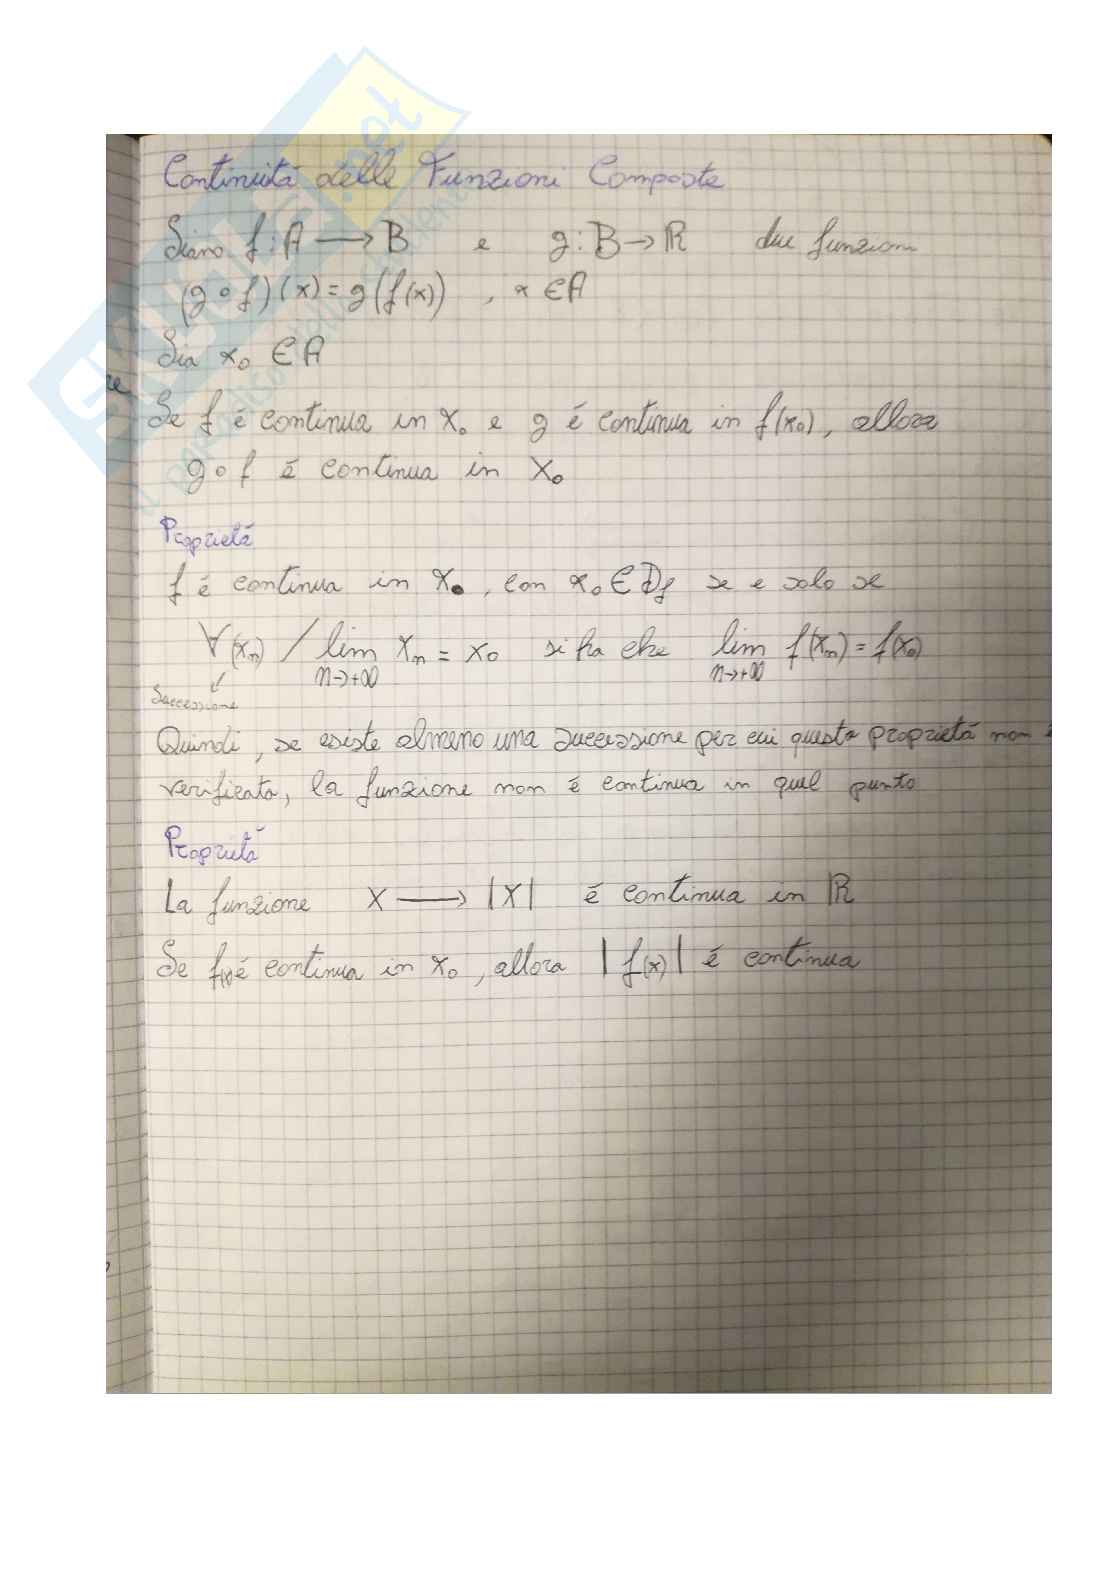 Continuitá delle Funzioni Composte
Siano f: A → B e g: B → R due funzioni
(g ∘ f)(x) = g(f(x)) , x ∈ A
Sia x₀ ∈ A
Se f é continua in x₀ e g é continua in f(x₀), allora
g ∘ f é continua in x₀
Proprietá
f é continua in x₀, con x₀ ∈ Df se e solo se
∀(xₙ) / lim xₙ = x₀ si ha che lim f(xₙ) = f(x₀)
n→+∞ n→+∞
Successione
Quindi, se esiste almeno una successione per cui questa proprietá non é
verificata, la funzione non é continua in quel punto
Proprietá
La funzione x → |x| é continua in R
Se f(x) é continua in x₀, allora |f(x)| é continua